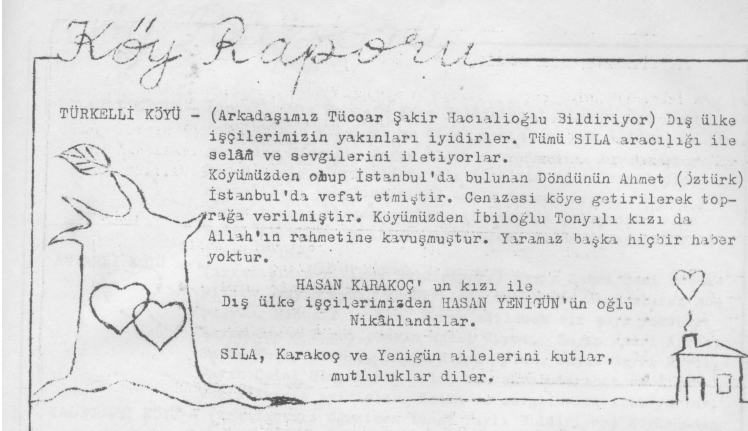 Köy Raporu
TÜRKELLİ KÖYÜ - (Arkadaşımız Tüccar Şakir Hacıalioğlu Bildiriyor) Dış ülke
işçilerimizin yakınları iyidirler. Tümü SILA aracılığı ile
selâm ve sevgilerini iletiyorlar.
Köyümüzden olup İstanbul'da bulunan Döndünün Ahmet (öztürk)
İstanbul'da vefat etmiştir. Cenazesi köye getirilerek top-
rağa verilmiştir. Köyümüzden İbiloğlu Tonyalı kızı da
Allah'ın rahmetine kavuşmuştur. Yaramaz başka hiçbir haber
yoktur.
HASAN KARAKOÇ' un kızı ile
Dış ülke işçilerimizden HASAN YENİGÜN'ün oğlu
Nikâhlandılar.
SILA, Karakoç ve Yenigün ailelerini kutlar,
mutluluklar diler.